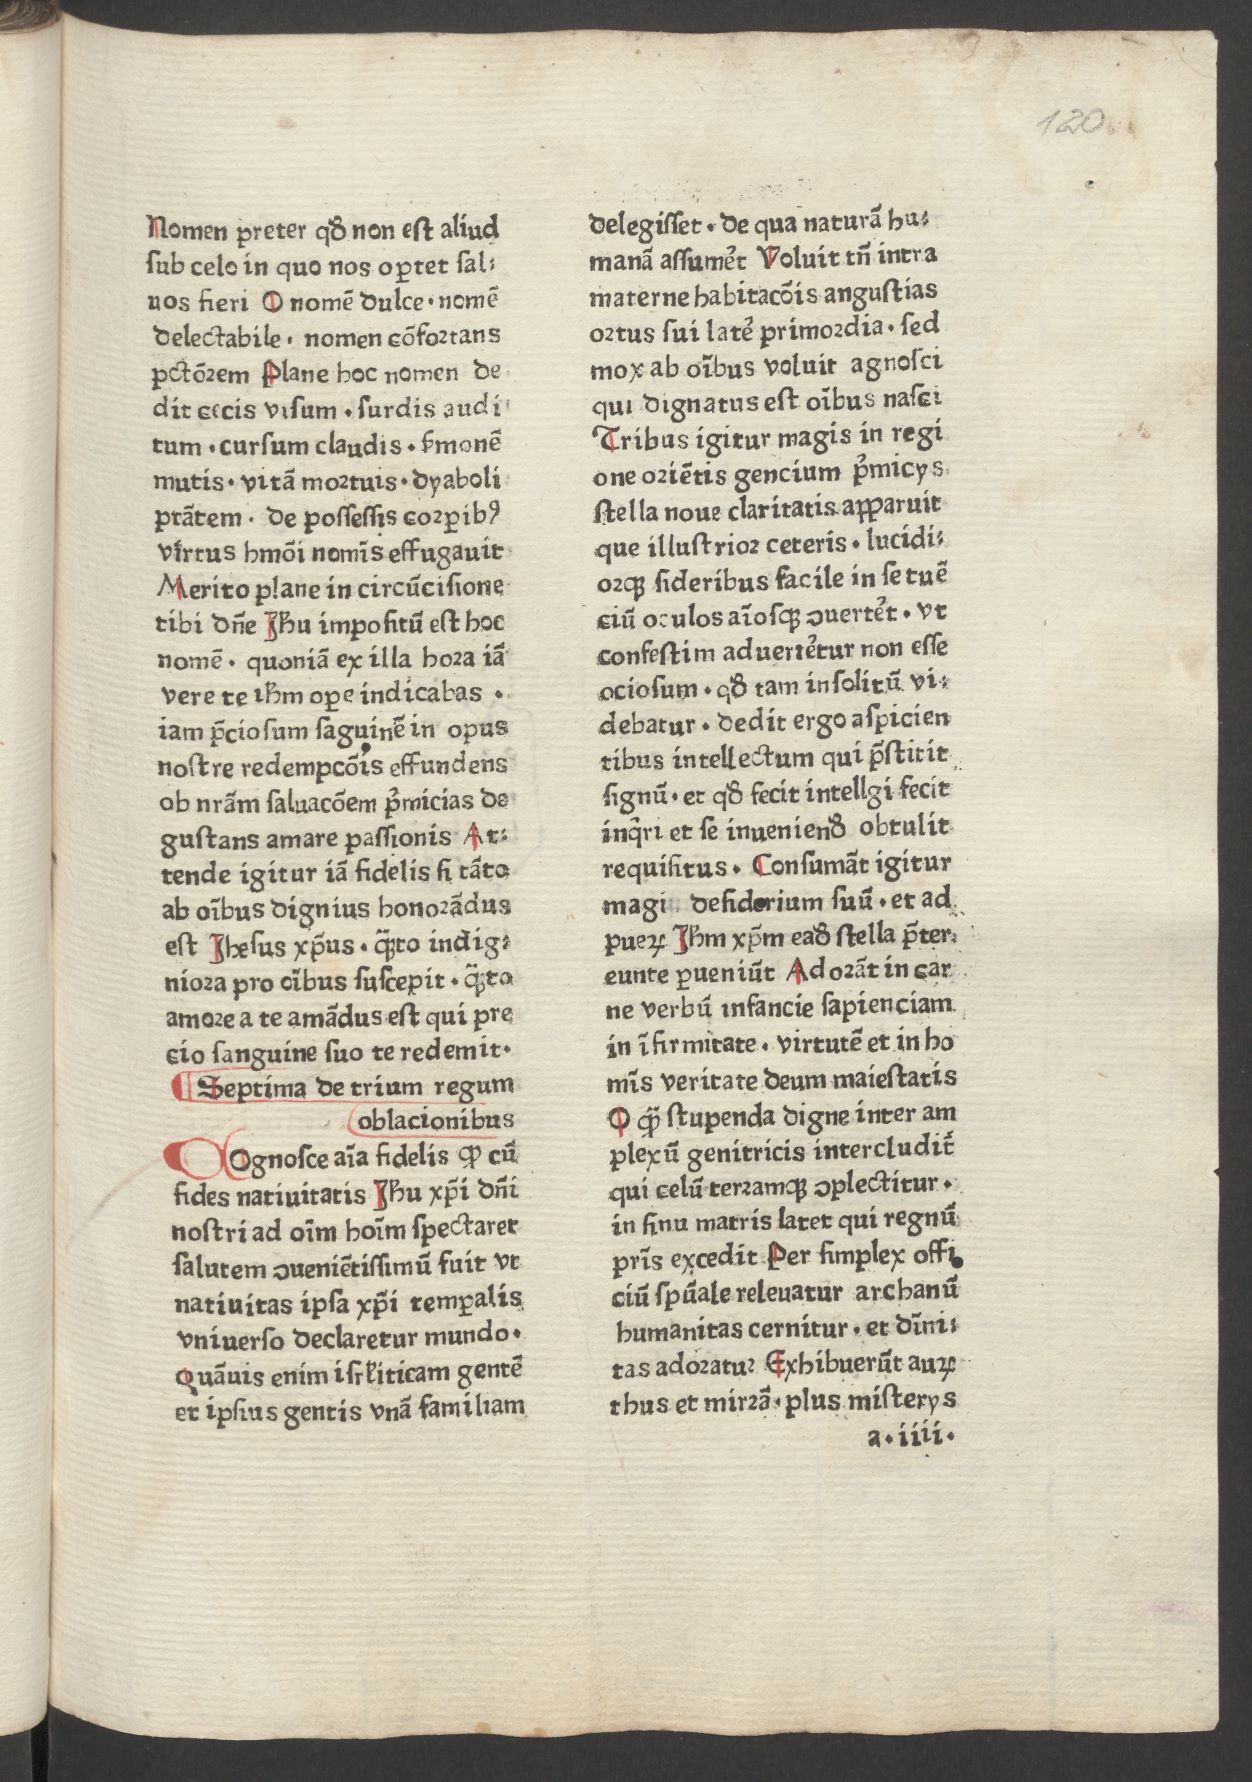 120
Nomen preter qđ non est aliud
sub celo in quo nos oꝑtet sal⸗
uos fieri O nomē dulce · nomē
delectabile · nomen cōfortans
pctōrem Plane hoc nomen de
dit cecis visum · surdis audi
tum · cursum claudis · ẜmonē
mutis · vitā mortuis · dyaboli
ptātem · de possessis corꝑibꝰ
virtus hmōi nomīs effugauit
Merito plane in circūcisione
tibi dn̄e Jħu impositū est hoc
nomē · quoniā ex illa hora iā
vere te iħm oꝑe indicabas ·
iam p̄ciosum saguinē in opus
nostre redempcōis effundens
ob nr̄am saluacōem p̓micias de
gustans amare passionis At⸗
tende igitur iā fidelis si tāto
ab oībus dignius honorādus
est Jhesus xp̄us · q̄̈to indig⸗
niora pro oībus suscepit · q̄̈to
amore a te amādus est qui pre
cio sanguine suo te redemit·
Septima de trium regum
oblacionibus
Ognosce aīa fidelis ꝙ cū
fides natiuitatis Jħu xp̄i dn̄i
nostri ad oīm hoīm spectaret
salutem ꝯueniētissimū fuit vt
natiuitas ipsa xp̄i temꝑalis
vniuerso declaretur mundo·
Quāuis enim isrl̄iticam gentē
et ipsius gentis vnā familiam
delegisset · de qua naturā hu⸗
manā assumēt Voluit tn̄ intra
materne habitacōis angustias
ortus sui latē primordia · sed
mox ab oībus voluit agnosci
qui dignatus est oībus nasci
Tribus igitur magis in regi
one oriētis gencium p̓micys
stella noue claritatis apparuit
que illustrior ceteris · lucidi⸗
orqꝫ sideribus facile in se tuē
ciū oculos aīosqꝫ ꝯuertēt · vt
confestim aduertētur non esse
ociosum · qđ tam insolitū vi⸗
debatur · dedit ergo aspicien
tibus intellectum qui p̄stitit
signū · et qđ fecit intellgi fecit
inq̓ri et se inueniend̄ obtulit
requisitus · Consumāt igitur
magi desiderium suū · et ad
pueꝝ Jħm xp̄m ead̄ stella p̄ter⸗
eunte ꝑueniūt Adorāt in car
ne verbū infancie sapienciam
in īfirmitate · virtutē et in ho
mīs veritate deum maiestatis
O q̄̈ stupenda digne inter am
plexū genitricis intercludit̄
qui celū terramqꝫ ꝯplectitur ·
in sinu matris latet qui regnū
pr̄is excedit Per simplex offi
ciū spūale releuatur archanū
humanitas cernitur · et dīni⸗
tas adoratur Exhibuerūt auꝝ
thus et mirrā · plus misterys
a · iiii ·